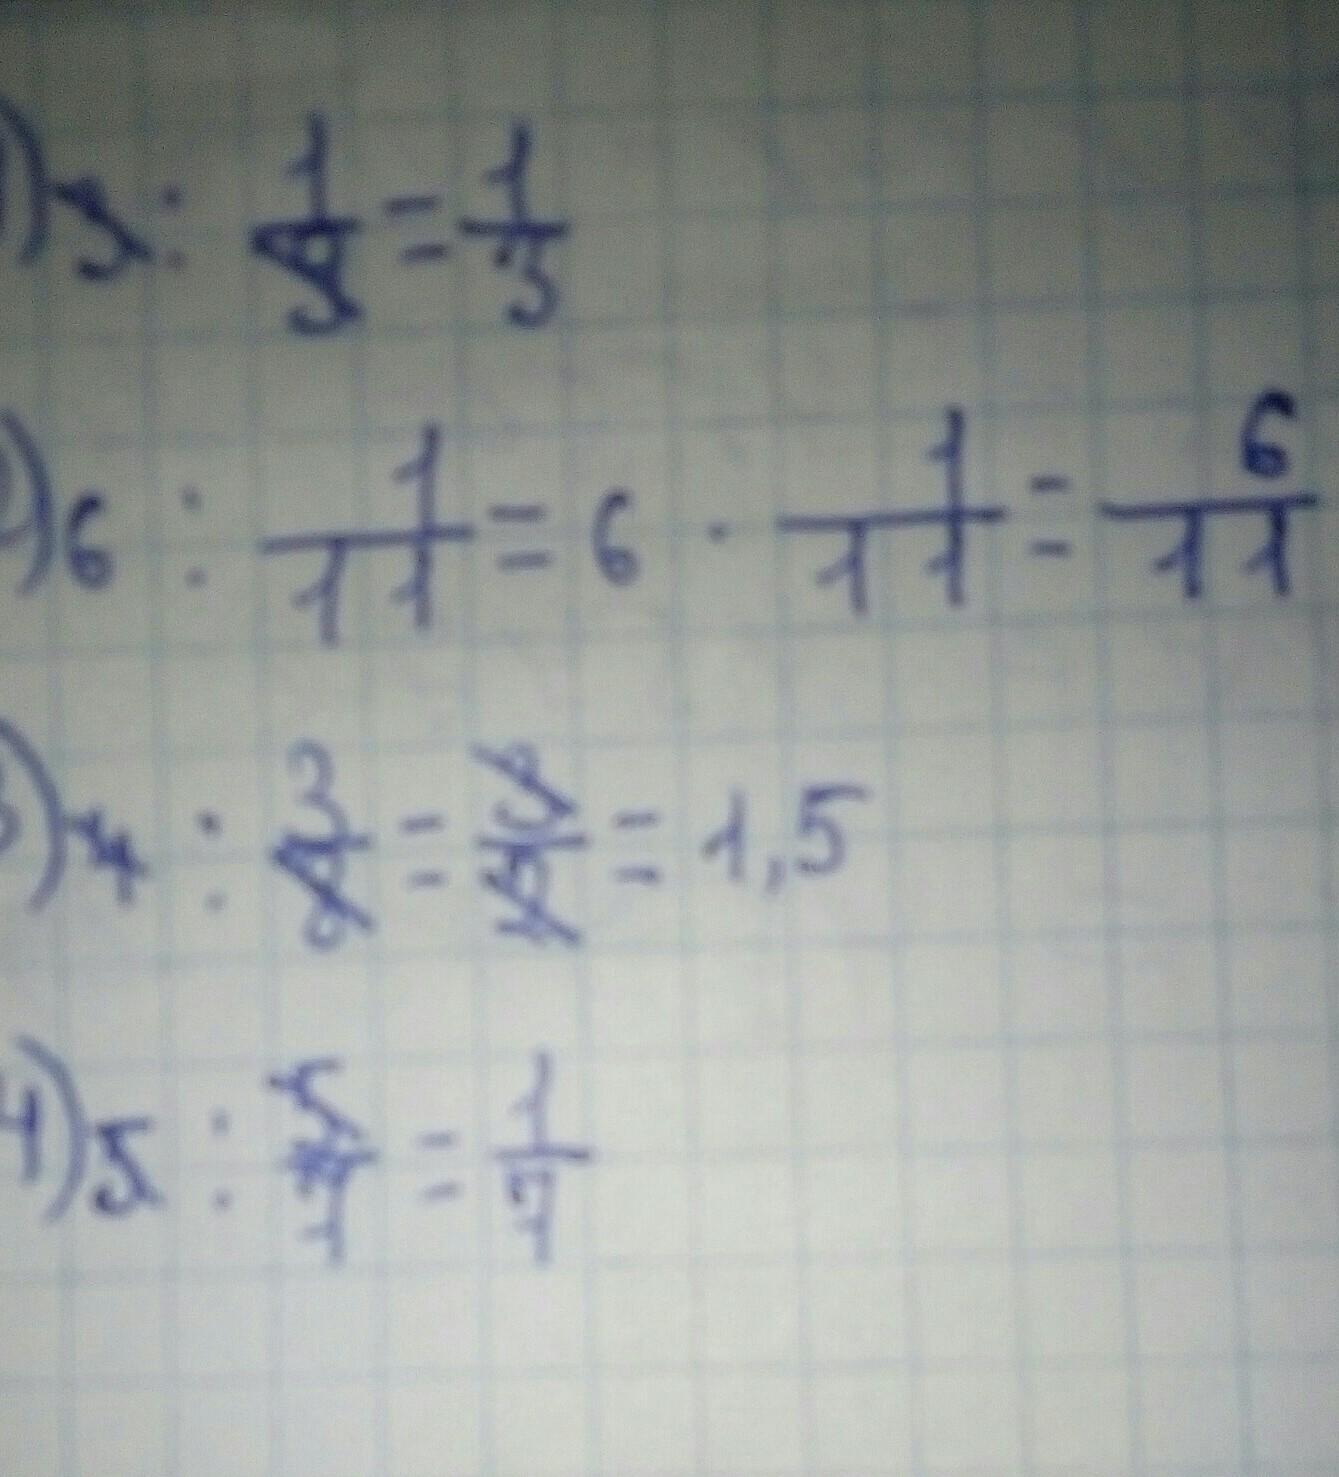 1) 3 : 1/9 = 1/3
2) 6 : 1/11 = 6 · 1/11 = 6/11
3) 4 : 3/8 = = 1,5
4) 5 : 5/7 = 1/7